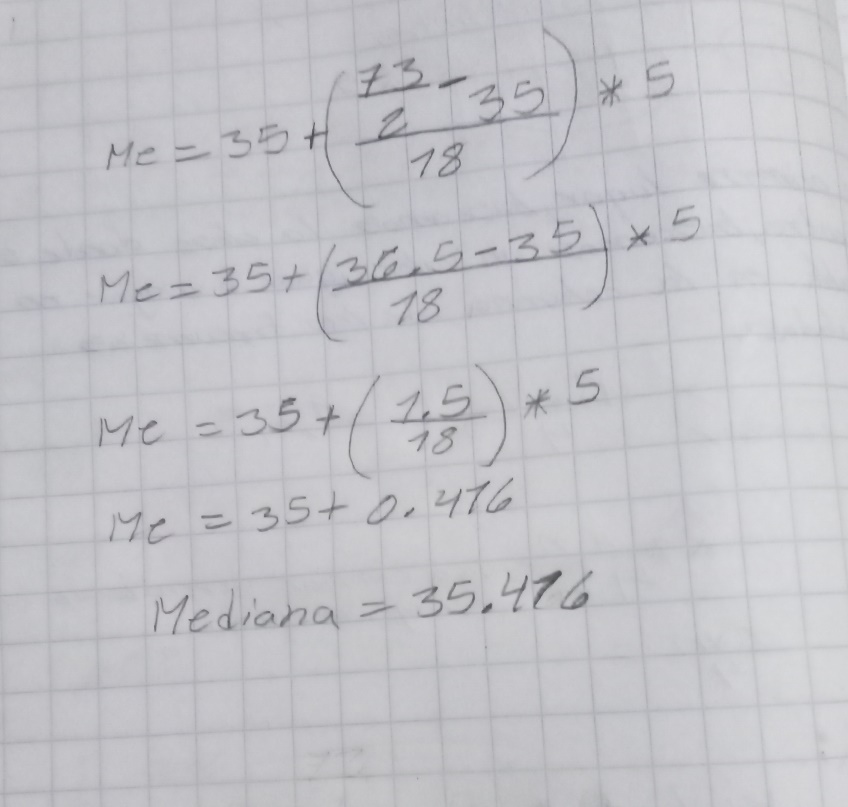 Me = 35 + ( (73/2 - 35) / 18 ) * 5
Me = 35 + ( (36.5 - 35) / 18 ) * 5
Me = 35 + ( 1.5 / 18 ) * 5
Me = 35 + 0.416
Mediana = 35.416